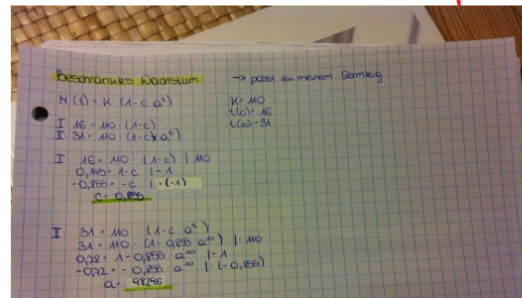 Beschränktes Wachstum → passt zu meinem Germteig
N(t) = K (1-c·aᵗ) K = 110
t(0) = 16
I 16 = 110 · (1-c) t(10) = 31
II 31 = 110 · (1-c · aᵗ)
I 16 = 110 · (1-c) | 110
0,145 = 1-c | -1
-0,855 = -c | ·(-1)
c = 0,855
II 31 = 110 · (1-c · aᵗ)
31 = 110 · (1-0,855 · a¹⁰) | : 110
0,28 = 1-0,855 · a¹⁰ | -1
-0,72 = -0,855 · a¹⁰ | (-0,855)
a = 98296